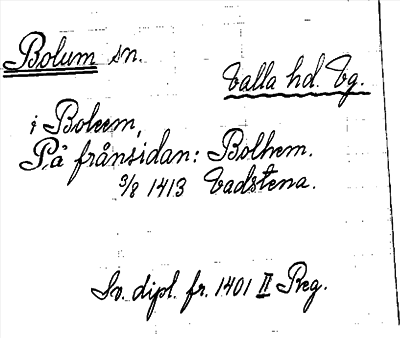 Bolum sn.
Valla hd. Vg.
i Boleem,
På frånsidan: Bolhem.
3/8 1413 Vadstena.
Sv. dipl. fr. 1401 II Reg.